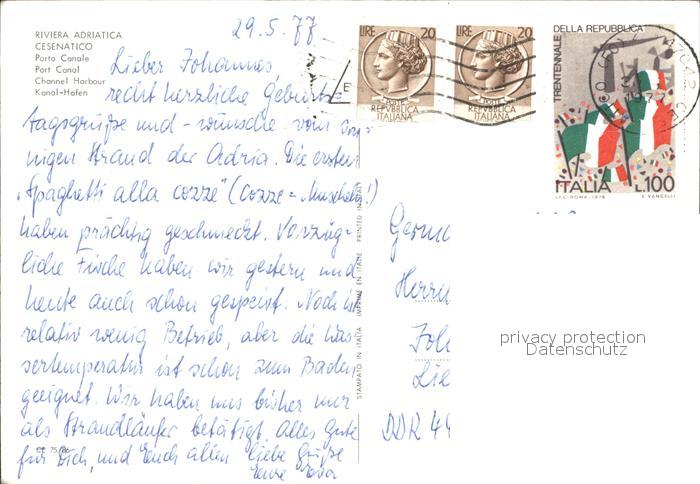 RIVIERA ADRIATICA
CESENATICO
Porto Canale
Port Canal
Channel Harbour
Kanal-Hafen
29.5.77
Lieber Johannes
recht herzliche Geburts-
tagsgrüße und -wünsche vom son-
nigen Strand der Adria. Die ersten
„Spaghetti alla cozze" (cozze = Muscheln!)
haben prächtig geschmeckt. Vorzüg-
liche Fische haben wir gestern und
heute auch schon gespeist. Noch ist
relativ wenig Betrieb, aber die Was-
sertemperatur ist schon zum Baden
geeignet. Wir haben uns bisher nur
als Strandläufer betätigt. Alles Gute
für Dich, und Euch allen liebe Grüße
Eure
CE 75/86
STAMPATO IN ITALIA IMPRIMÉ EN ITALIE PRINTED IN ITALY
LIRE 20
POSTE
REPVBBLICA
ITALIANA
LIRE 20
POSTE
REPVBBLICA
ITALIANA
TRENTENNALE DELLA REPUBBLICA
ITALIA L.100
I.P.S.-ROMA-1976 E. VANGELLI
Germa
Herrn
Joh
Lie
DDR 44
privacy protection
Datenschutz